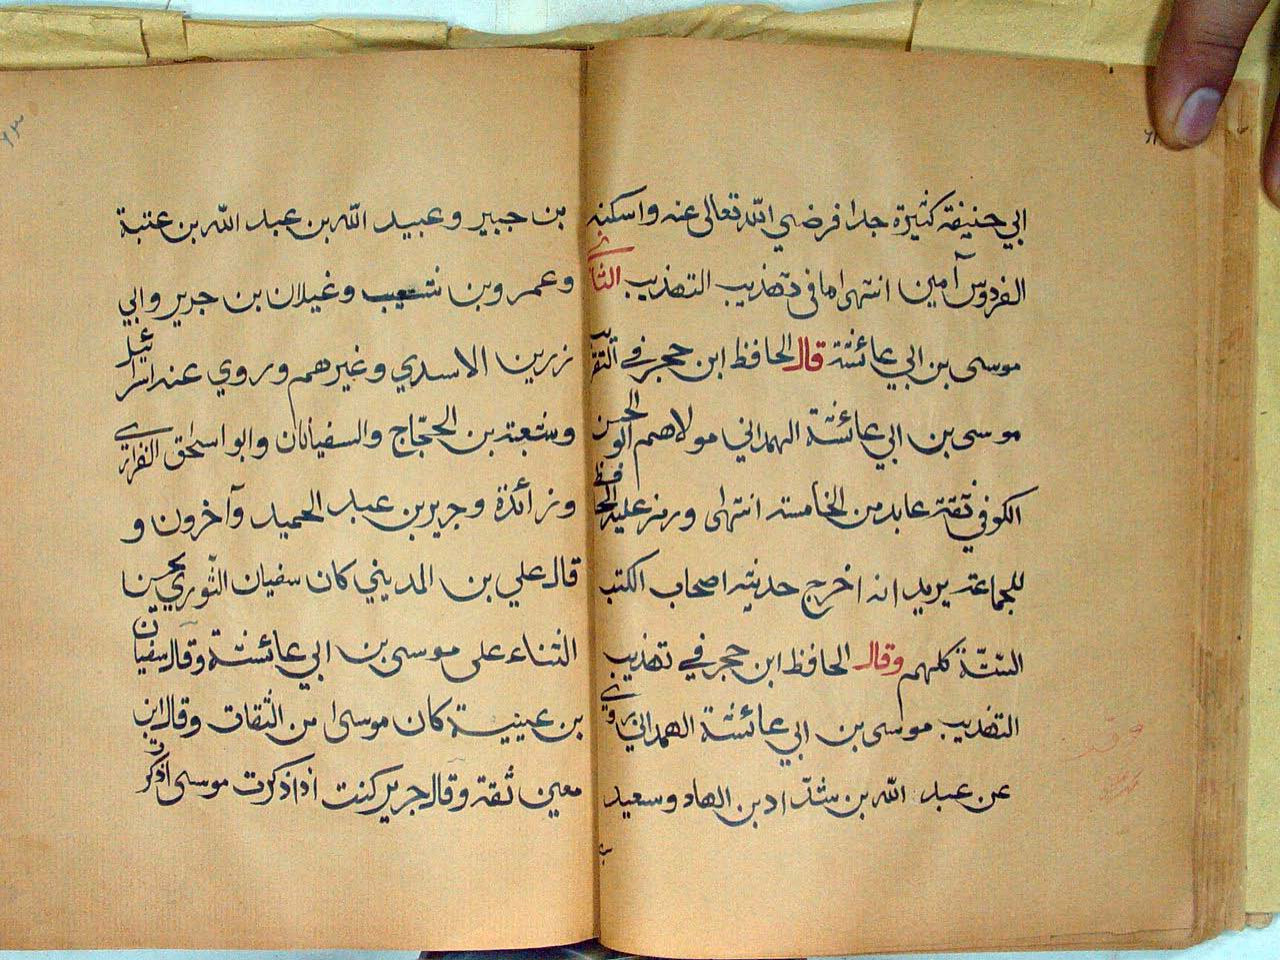 ابي حنيفة كثيرة جدا فرضي الله تعالى عنه واسكنه
الفردوس آمين انتهى ما في تهذيب التهذيب الثاني
موسى بن ابي عائشة قال الحافظ ابن حجر في التقريب
موسى بن ابي عائشة الهمداني مولاهم ابو الحسن
الكوفي ثقة عابد من الخامسة انتهى ورمز عليه الحافظ
للجماعة يريد انه اخرج حديثه اصحاب الكتب
الستّة كلهم وقال الحافظ ابن حجر في تهذيب
التهذيب موسى بن ابي عائشة الهمداني روى
عن عبد الله بن شدّاد بن الهاد وسعيد
بن جبير وعبيد الله بن عبد الله بن عتبة
وعمرو بن شعيب وغيلان بن جرير وابي
زرين الاسدي وغيرهم وروي عنه اسرائيل
وشعبة بن الحجّاج والسفيانان وابو اسحق الفزاري
وزائدة وجرير بن عبد الحميد وآخرون و
قال علي بن المديني كان سفيان الثوري يحسن
الثناء على موسى بن ابي عائشة وقال سفيان
بن عيينية كان موسى من الثقات وقال ابن
معين ثقة وقال جرير كنت اذا ذكرت موسى اذكر